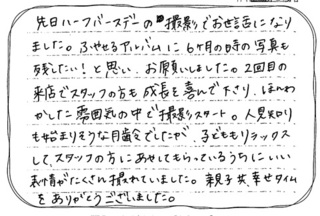 先日ハーフバースデーの撮影でお世話になり
ました。ふやせるアルバムに6ヶ月の時の写真も
残したい!と思い、お願いしました。2回目の
来店でスタッフの方も成長を喜んで下さり、ほんわ
かした雰囲気の中で撮影スタート。人見知り
も始まりそうな月齢でしたが、子どももリラックス
して、スタッフの方にあやしてもらっているうちにいい
表情がたくさん撮れていました。親子共、幸せタイム
をありがとうございました。